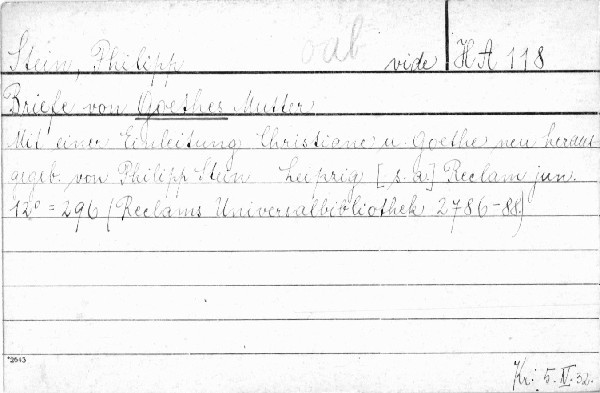 Stein, Philipp oab vide HA 118
Briefe von Goethes Mutter
Mit einer Einleitung Christiane u. Goethe neu heraus
gegeb. von Philipp Stein Leipzig [s. a.] Reclam jun.
12° = 296 (Reclams Universalbibliothek 2786-88)
*2643
Kr: 5. IV. 32.